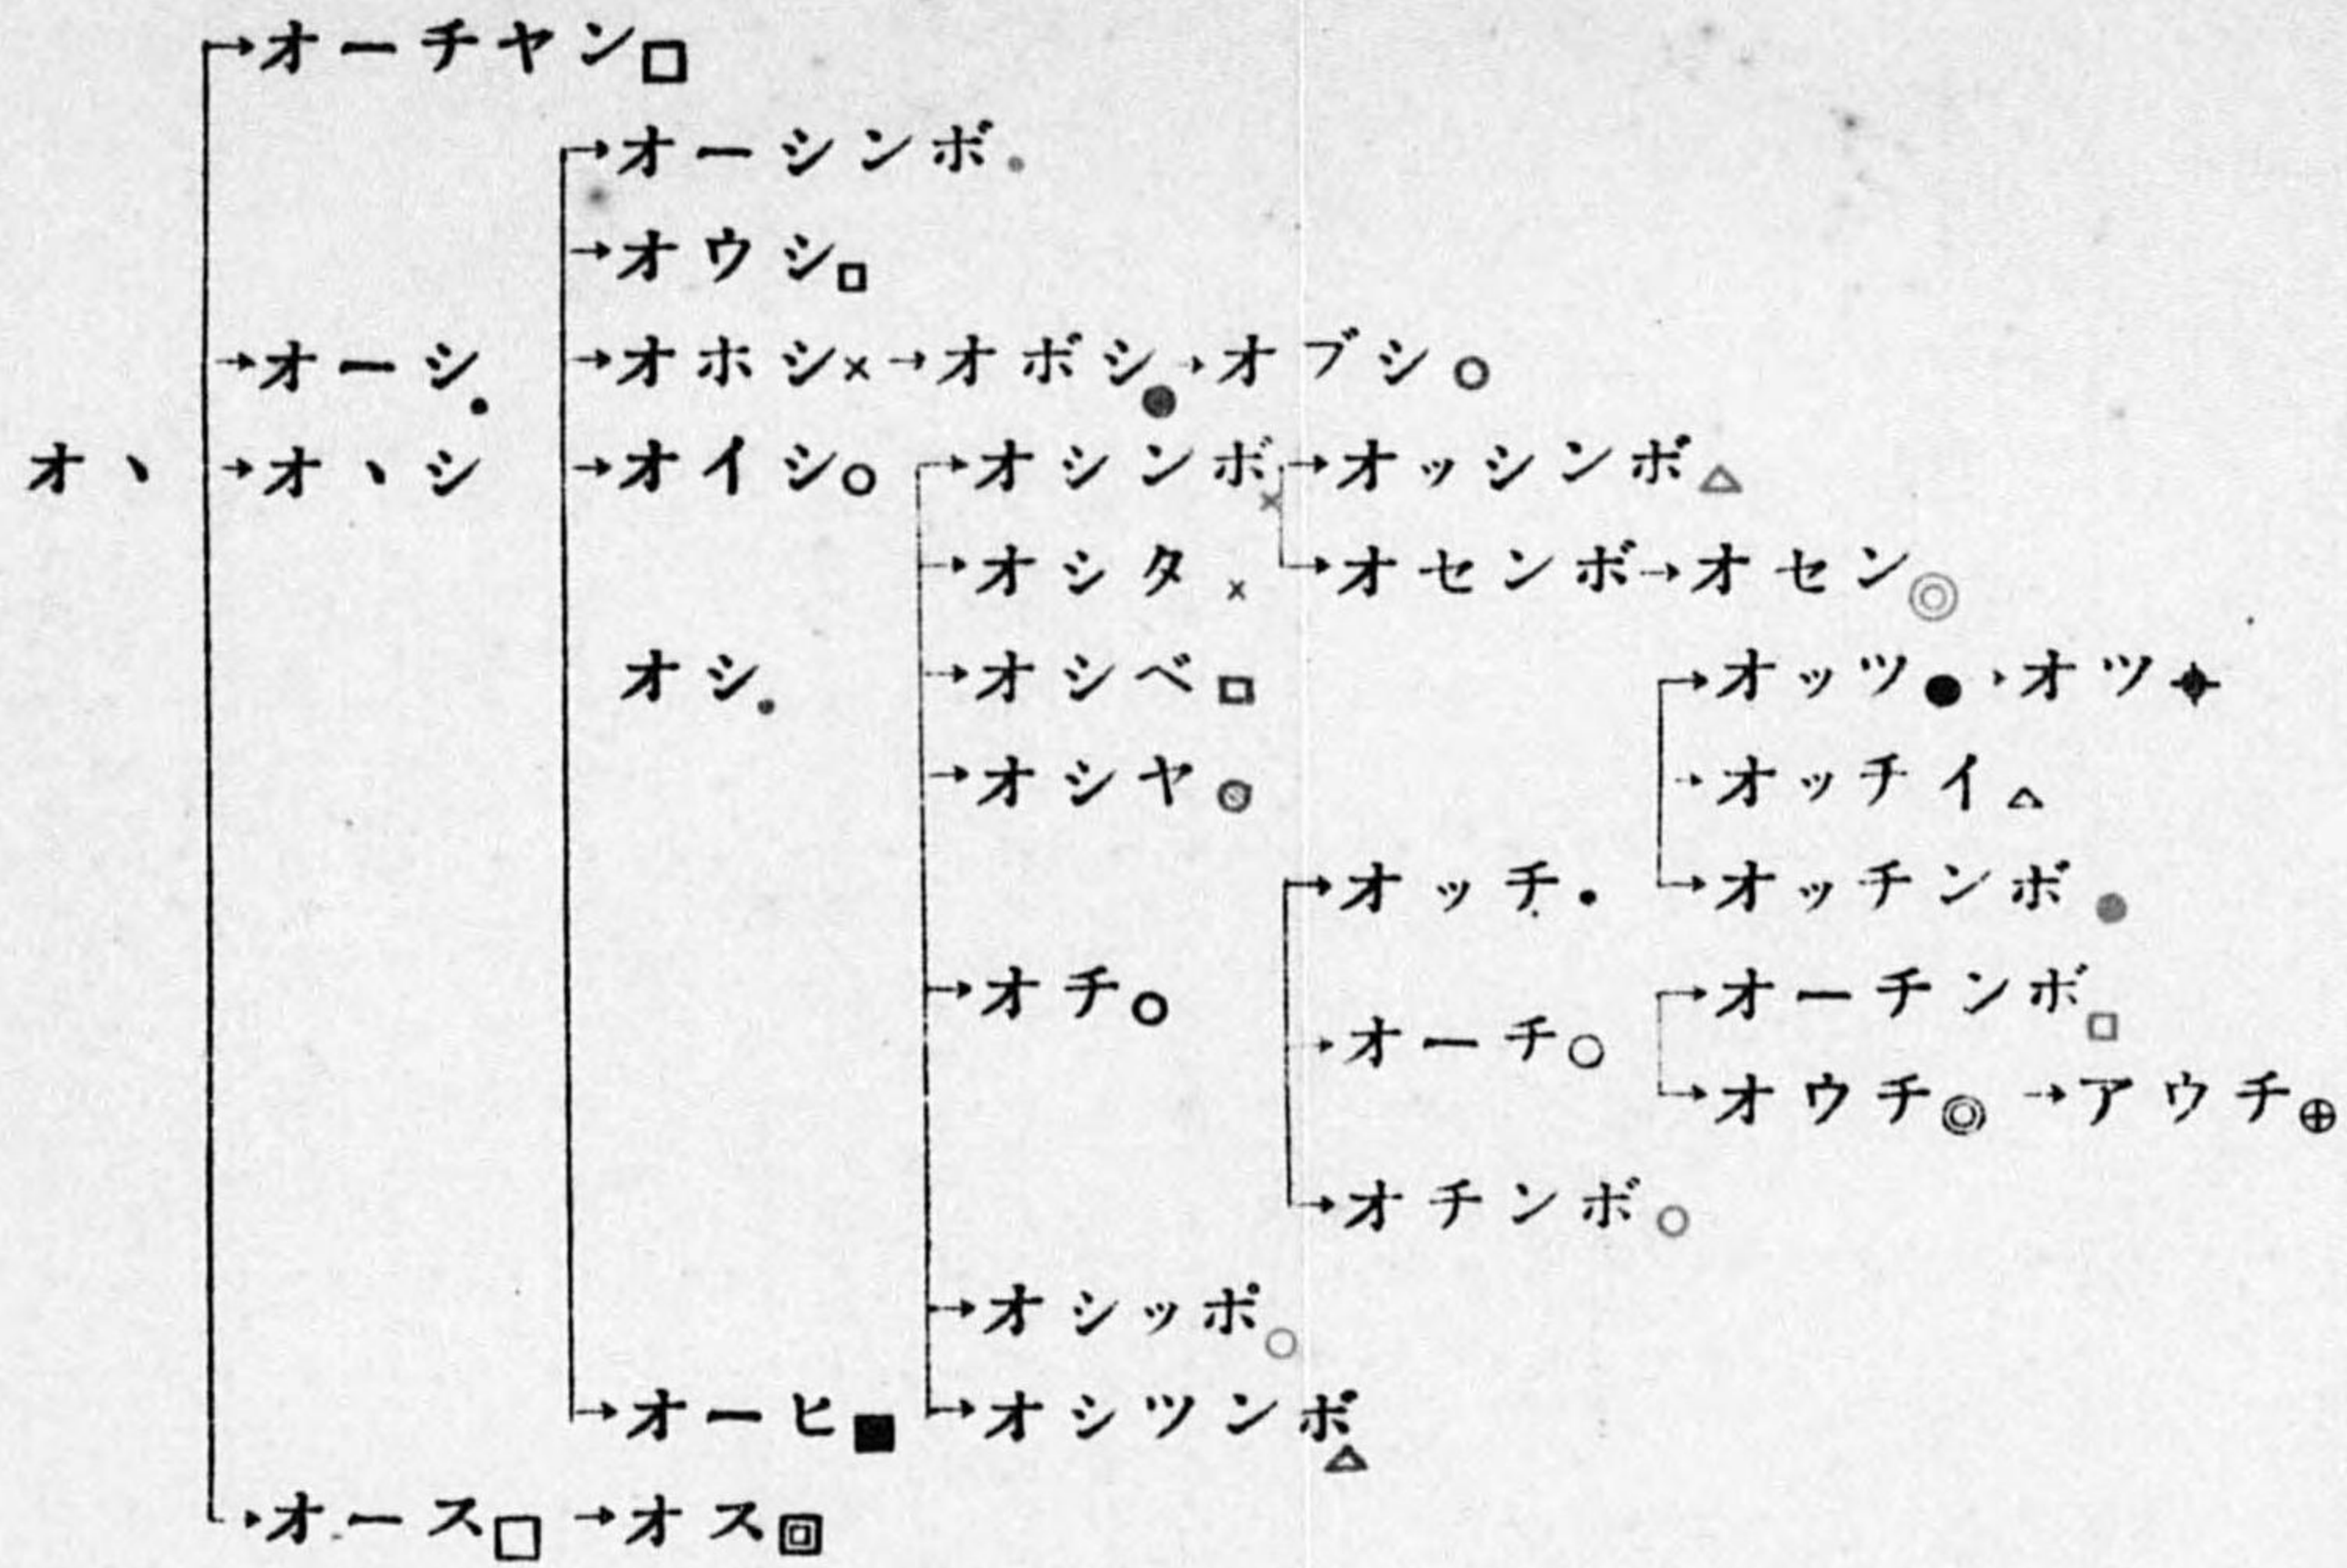 →オーチヤン□
→オーシンボ●
→オウシ□
→オーシ● →オホシ× →オボシ● →オブシ○
オヽ →オヽシ →オイシ○ →オシンボ× →オッシンボ△
→オシタ× →オセンボ→オセン◎
オシ● →オシベ□ →オッツ● →オツ◆
→オシヤ◎ →オッチイ△
→オッチ● →オッチンボ●
→オチ○ →オーチンボ□
→オーチ○
→オウチ◎ →アウチ⊕
→オチンボ○
→オシッポ○
→オーヒ■ →オシツンボ△
→オース□ →オス回